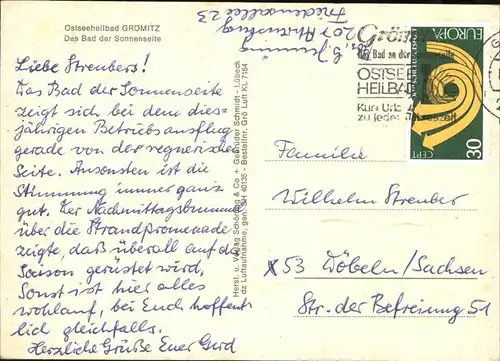 Ostseeheilbad GRÖMITZ
Das Bad der Sonnenseite
Liebe Streubers!
Das Bad der Sonnenseite
zeigt sich bei dem dies-
jährigen Betriebsausflug
gerade von der regnerischen
Seite. Ansonsten ist die
Stimmung immer ganz
gut. Der Nachmittagsbummel
über die Strandpromenade
zeigte, daß überall auf die
Saison gerüstet wird,
Sonst ist hier alles
wohlauf, bei Euch hoffent-
lich gleichfalls.
Herzliche Grüße Euer Gerd
Herst. u. Verlag Schöning & Co + Gebrüder Schmidt - Lübeck
dz Luftaufnahme, gen. SH 40135 - Bestellnr. Grö Luft KL 7164
207 Ahrensburg
Grömitz
Das Bad an der Sonnenseite
OSTSEE
HEILBAD
Kur Urlaub
zu jeder Jahreszeit
EUROPA
DEUTSCHE BUNDESPOST
CEPT
30
Familie
Wilhelm Streuber
x 53 Döbeln/Sachsen
Str. der Befreiung 51